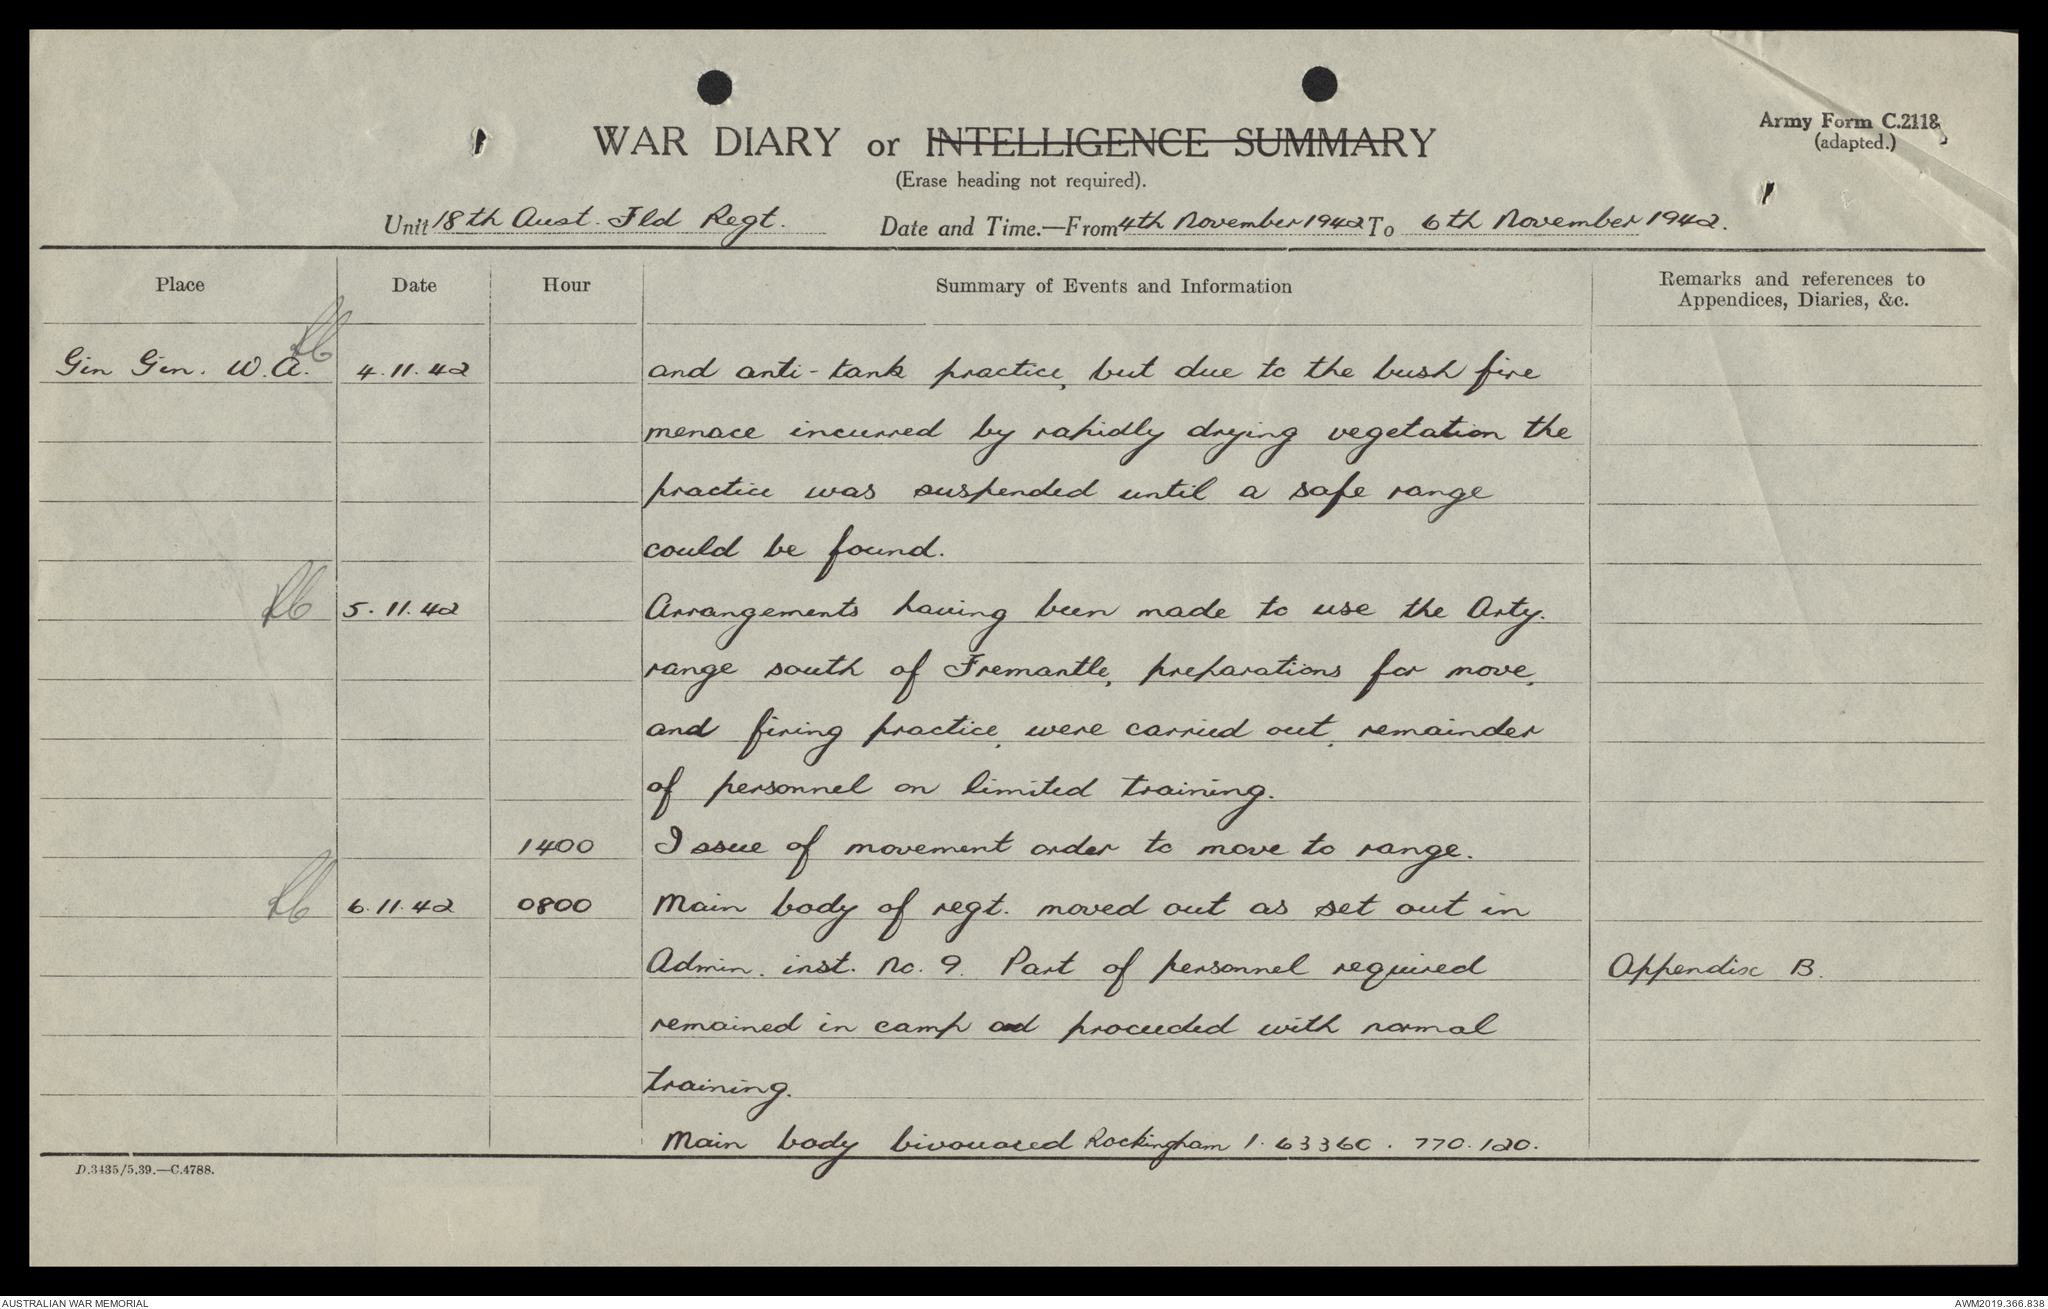 WAR DIARY or INTELLIGENCE SUMMARY
(Erase heading not required).
Army Form C.2118
(adapted.)
Unit 18th Aust. Fld Regt. Date and Time.—From 4th November 1942 To 6th November 1942.
Place Date Hour Summary of Events and Information Remarks and references to
Appendices, Diaries, &c.
Gin Gin. W.A. 4.11.42 and anti-tank practice, but due to the bush fire
menace incurred by rapidly drying vegetation the
practice was suspended until a safe range
could be found.
5.11.42 Arrangements having been made to use the Arty.
range south of Fremantle, preparations for move,
and firing practice, were carried out, remainder
of personnel on limited training.
1400 Issue of movement order to move to range.
6.11.42 0800 Main body of regt. moved out as set out in
Admin. inst. No. 9. Part of personnel required Appendix B.
remained in camp and proceeded with normal
training.
Main body bivouaced Rockingham 1. 63360. 770.120.
D.3435/5.39.—C.4788.
AUSTRALIAN WAR MEMORIAL AWM2019.366.838